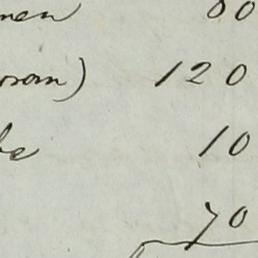 men 80
oson) 120
be 10
70